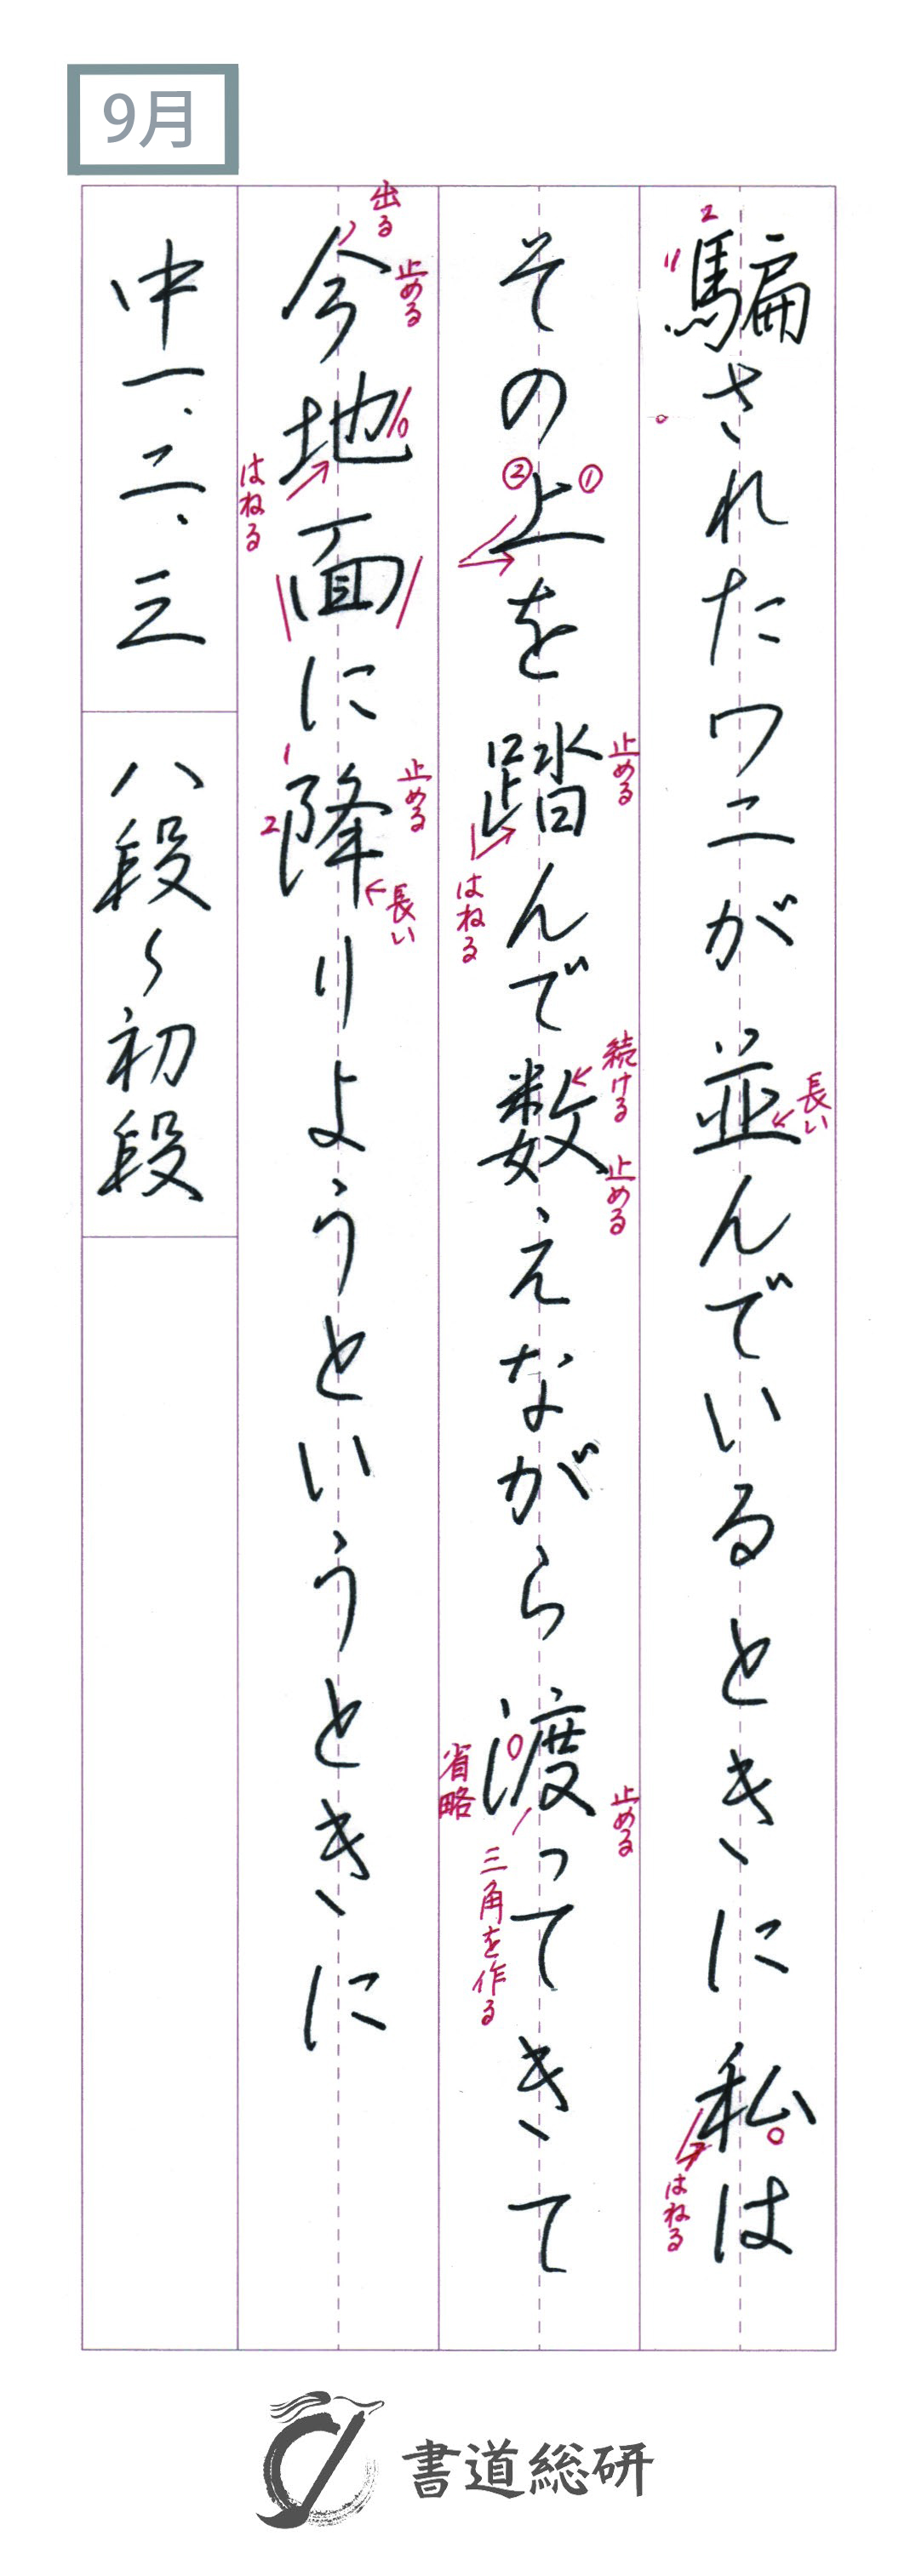 9月
騙されたワニが並んでいるときに私は
2
1
長い
はねる
その上を踏んで数えながら渡ってきて
①
②
止める
はねる
続ける
止める
止める
省略
三角を作る
今地面に降りようというときに
出る
止める
はねる
1
2
止める
長い
中一、二、三
八段〜初段
書道総研